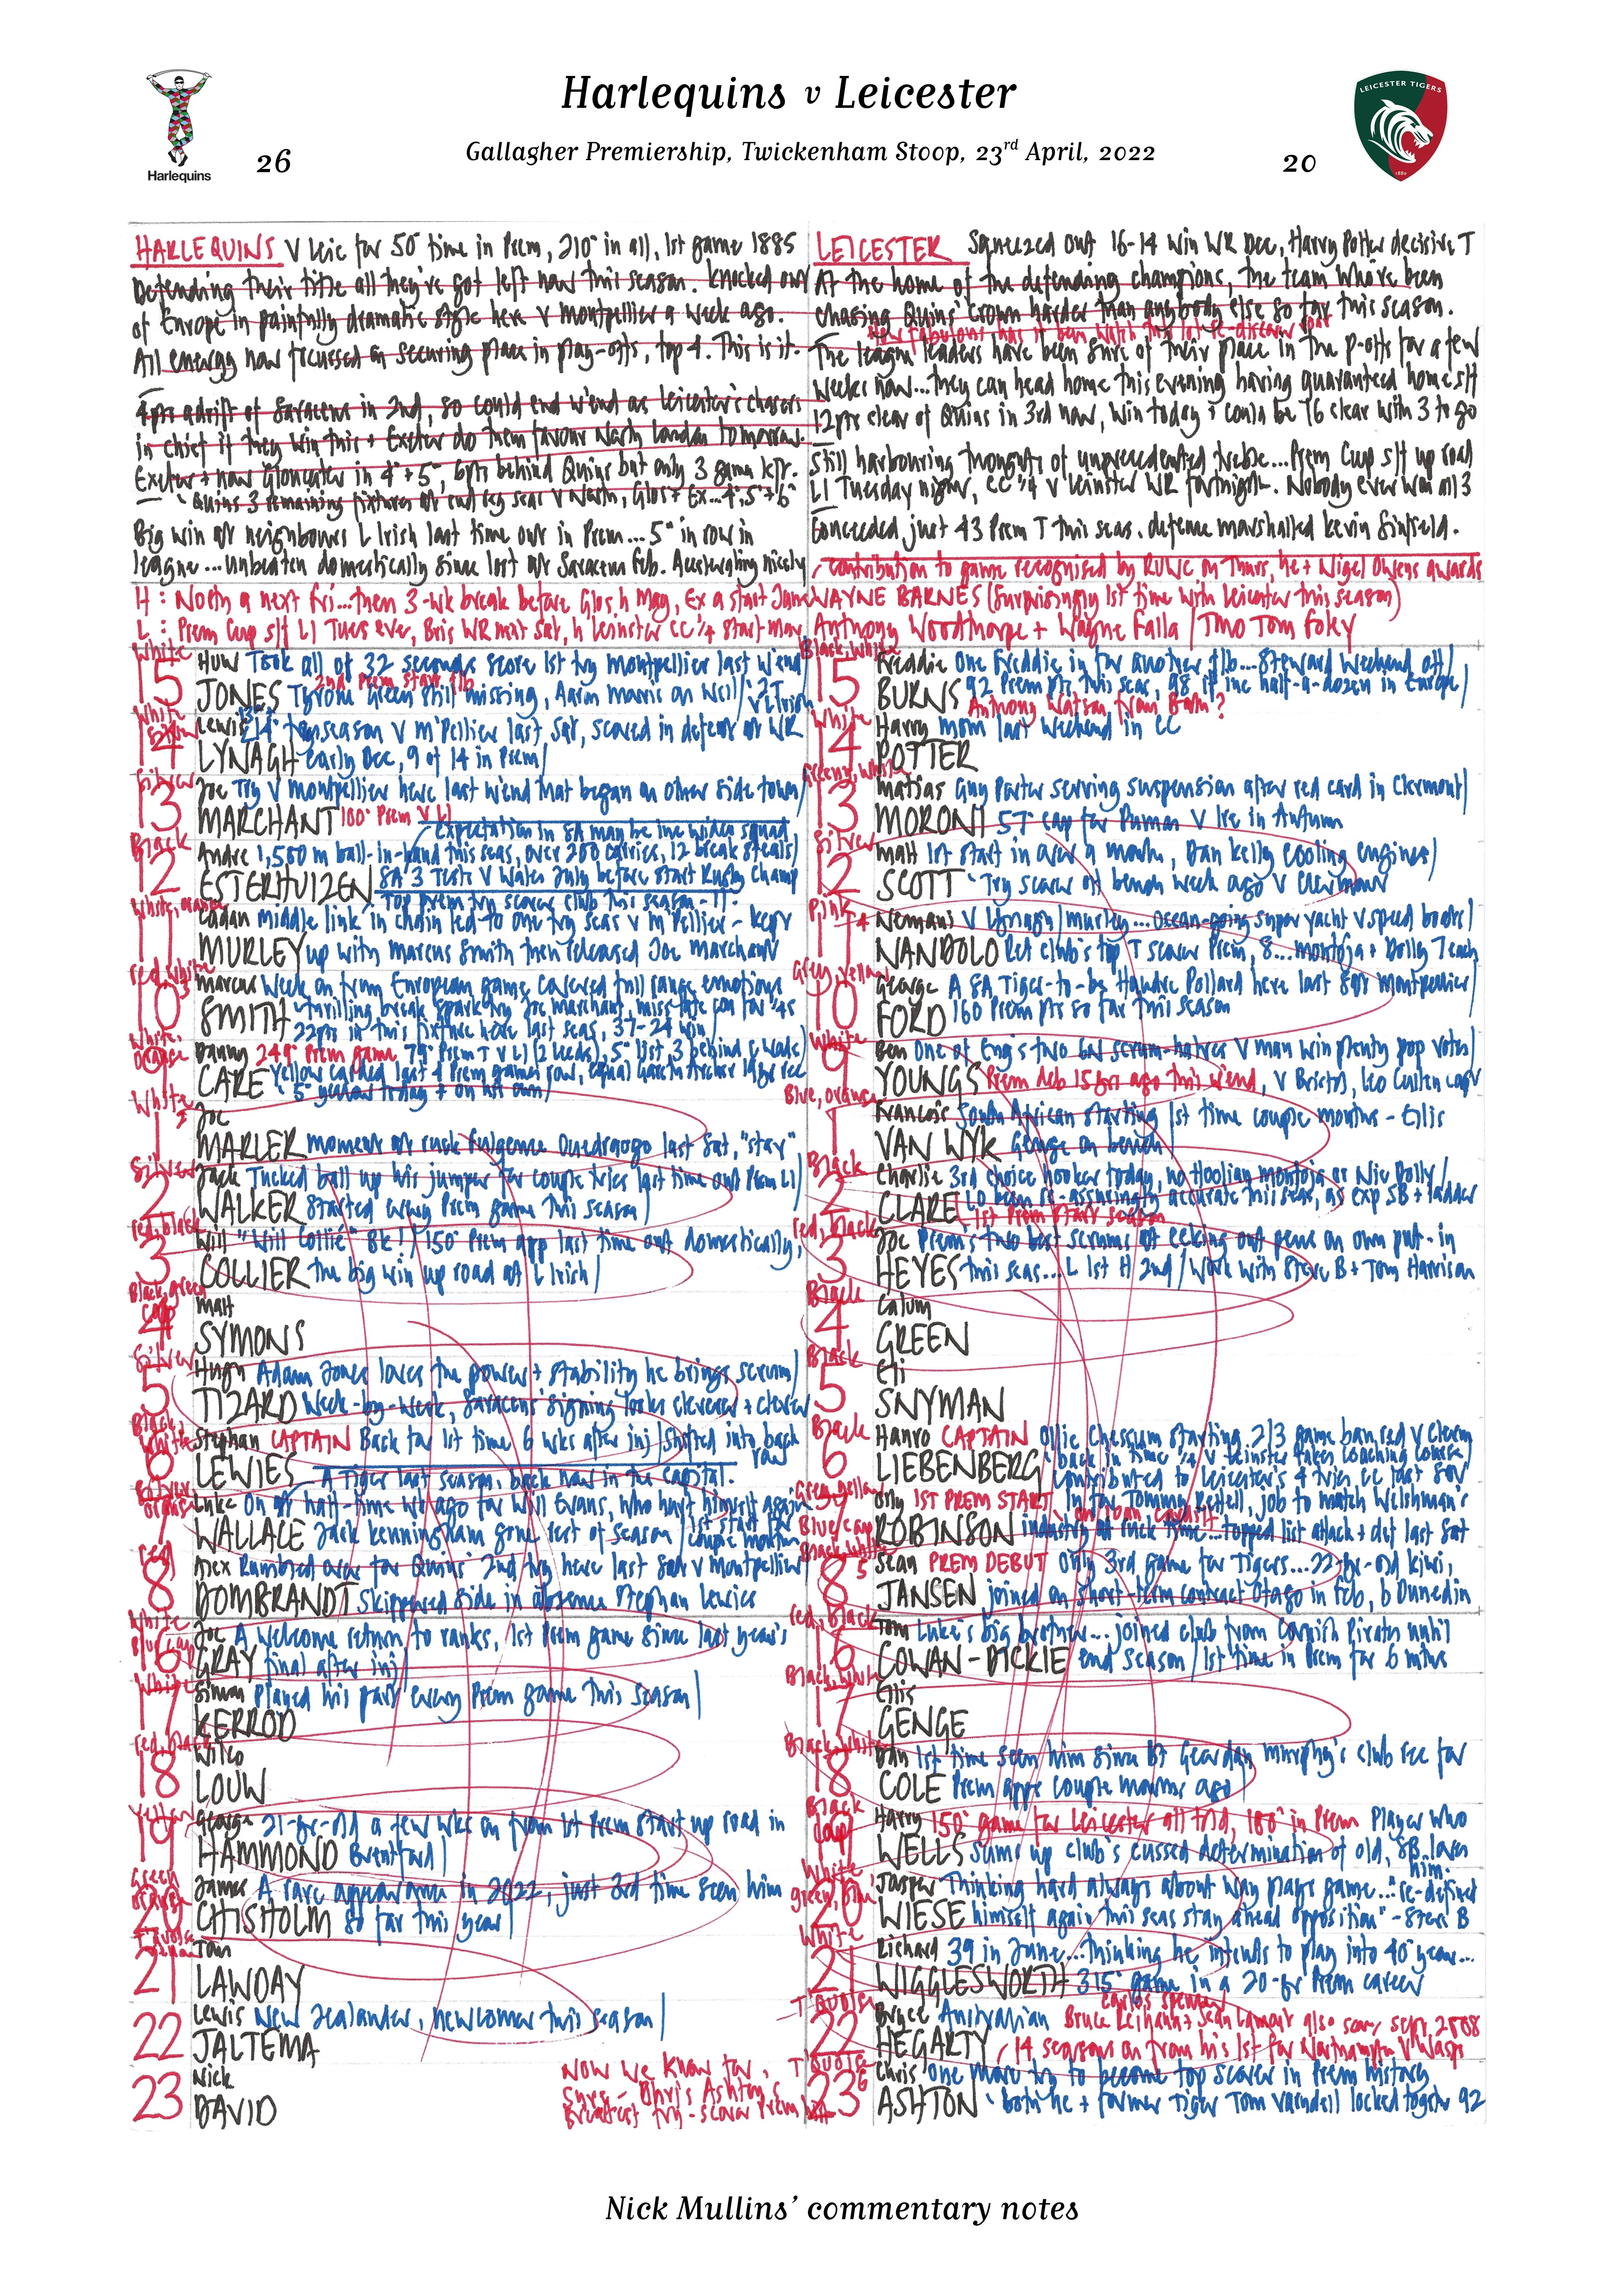 Harlequins v Leicester
Gallagher Premiership, Twickenham Stoop, 23rd April, 2022
Harlequins
26
20
LEICESTER TIGERS
1880
HARLEQUINS V Leic for 50th time in Prem, 210th in all, 1st game 1885
Defending their title all they've got left now this season. Knocked out
of Europe in painfully dramatic style here v Montpellier a week ago.
All energy now focussed on securing place in play-offs, top 4. This is it.
4pts adrift of Saracens in 2nd, so could end w'end as Leicester's chasers
in chief if they win this + Exeter do them favour North London tomorrow.
Exeter + now Gloucester in 4th + 5th, 6pts behind Quins but only 3 games left.
Quins 3 remaining fixtures of reg seas v North, Glos + Ex...4th, 5th + 6th
Big win at neighbours L Irish last time out in Prem...5th in row in
league...unbeaten domestically since lost at Saracens Feb. Accelerating nicely
H: North a next Fri...then 3-wk break before Glos h May, Ex a start June
L: Prem Cup s/f LI Tues eve, Bris WR next Sat, h Leinster CC 1/4 start May
LEICESTER Squeezed out 16-14 win WR Dec, Harry Potter decisive T
At the home of the defending champions, the team who've been
chasing Quins' crown harder than anybody else so far this season.
How fabulous has it been watch this lot re-discover roar
The league leaders have been sure of their place in the p-offs for a few
weeks now...they can head home this evening having guaranteed home s/f
12pts clear of Quins in 3rd now, win today + could be 16 clear with 3 to go
Still harbouring thoughts of unprecedented treble...Prem Cup s/f up road
LI Tuesday night, CC 1/4 v Leinster WR fortnight. Nobody ever won all 3
Conceded just 43 Prem T this seas. defence marshalled Kevin Sinfield.
contribution to game recognised by RUWC on Thurs, he + Nigel Owens awards
WAYNE BARNES (Surprisingly 1st time with Leicester this season)
Anthony Woodthorpe + Wayne Falla / TMO Tom Foley
White
15 Huw JONES Took all of 32 seconds score 1st try Montpellier last w'end
2nd Prem start f/b
Tyrone Green still missing, Aaron Morris on well / 2T v L Irish
White
14 Lewis LYNAGH 14th try season v M'pellier last Sat, scored in defeat at WR
early Dec, 9 of 14 in Prem
Silver
13 Joe MARCHANT Try v Montpellier here last w'end that began on other side town
100th Prem v LI
Expectation in SA may be inc wider squad
Black
12 Andre ESTERHUIZEN 1,500 m ball-in-hand this seas, over 200 carries, 12 break steals
SA 3 Tests v Wales July before start Rugby Champ
Top Prem try scorer club this season - 11.
White, orange
11 Cadan MURLEY middle link in chain led to one try seas v M'Pellier - kept
up with Marcus Smith then released Joe Marchant
Red, white
10 Marcus SMITH Week on from European game covered full range emotions
thrilling break spark try Joe Marchant, miss late con for 1/4s
22pts in this fixture here last seas, 37-24 win
White, orange
9 Danny CARE 249th Prem game 79th Prem T v LI (2 Leeds), 5th list 3 behind
Yellow carded last 4 Prem games row, equal Gareth Archer 1998 rec
5th yellow today + on his own
White
1 Joe MARLER moment at ruck Fulgence Ouedraogo last Sat, "stay"
Silver
2 Jack WALKER Tucked ball up his jumper for couple tries last time out Prem LI
Started every Prem game this season
Red, black
3 Will COLLIER "Will Collié" BE! / 150th Prem app last time out domestically,
the big win up road at L Irish
Black, green cap
4 Matt SYMONS
Silver
5 Hugh TIZARD Adam Jones loves the power + stability he brings scrum
Week-by-week, Saracens' signing looks cleverer + clever
Black, white
6 Stephan LEWIES CAPTAIN Back for 1st time 6 wks after inj / Shifted into back row
A Tiger last season, back now in the capital.
Silver orange
7 Luke WALLACE On at half-time wk ago for Will Evans, who hurt himself again
Jack Kenningham gone rest of season / 1st start for couple months
Red
8 Alex DOMBRANDT Rumbled over for Quins' 2nd try here last Sat v Montpellier
Skippered side in absence Stephan Lewies
White Blue cap
16 Joe GRAY A welcome return to ranks, 1st Prem game since last year's
final after inj
White
17 Simon KERROD Played his part every Prem game this season
Red, black
18 Wilco LOUW
Yellow
19 George HAMMOND 21-yr-old a few wks on from 1st Prem start up road in
Brentford
Green orange
20 James CHISHOLM A rare appearance in 2022, just 3rd time seen him
so far this year
21 Tom LAWDAY
22 Lewis JALTEMA New Zealander, newcomer this season
23 Nick DAVID
Now we know for
sure - Chris Ashton's
greatest try-scorer Prem
Black, white
15 Freddie BURNS One Freddie in for another f/b...Steward weekend off
92 Prem pts this seas, 98 if inc half-a-dozen in Europe
Anthony Watson from Bath?
White
14 Harry POTTER mom last weekend in CC
Green, white
13 Matias MORONI Guy Porter serving suspension after red card in Clermont
57th cap for Pumas v Ire in Autumn
Silver
12 Matt SCOTT 1st start in over a month, Dan Kelly cooling engines
Try scorer off bench week ago v Clermont
Pink
11 Nemani NANDOLO V Lynagh / Murley...ocean-going super yacht v speed boats
Ret club's top T scorer Prem, 8...Montoya + Dolly 7 each
Grey, yellow
10 George FORD A SA Tiger-to-be Handre Pollard here last Sat Montpellier
160 Prem pts so far this season
White
9 Ben YOUNGS One of Eng's two scrum-halves v man win plenty pop votes
Prem deb 15 yrs ago this w'end, v Bristol, Leo Cullen capt
Blue, orange
1 Francois VAN WYK South African starting 1st time couple months - Ellis
Genge on bench
Black
2 Charlie CLARE 3rd choice hooker today, no Montoya or Nic Dolly
LO been re-assuringly accurate this seas, as exp SB + ladder
1st Prem start season
Red, black
3 Joe HEYES Prem's two best scrums at eeking out pens on own put-in
this seas...L 1st H 2nd / work with Steve B + Tom Harrison
Black
4 Calum GREEN
Black
5 Eli SNYMAN
Black
6 Hanro LIEBENBERG CAPTAIN Ollie Chessum starting 2/3 game ban red v Clerm
back in time 1/4 v Leinster takes coaching course
contributed to Leicester's 4 tries CC last Sat
Green, yellow Blue cap
7 Olly ROBINSON 1ST PREM START In for Tommy Reffell, job to match Welshman's
on loan Cardiff
industry at ruck time...topped list attack + def last Sat
Black, white
8 Sean JANSEN PREM DEBUT Only 3rd game for Tigers...22-yr-old Kiwi,
joined on short-term contract Otago in Feb, b Dunedin
Red, black
16 Tom COWAN-DICKIE Luke's big brother...joined club from Cornish Pirates until
end season / 1st time in Prem for 6 mths
Black, white
17 Ellis GENGE
Black, white
18 Dan COLE 1st time seen him since bt Geordan Murphy's club rec for
Prem apps couple months ago
Black cap
19 Harry WELLS 150th game for Leicester all told, 180th in Prem Player who
sums up club's cussed determination of old, SB loves him.
White green, blue
20 Jasper WIESE Thinking hard always about way plays game..."re-defined
himself again this seas stay ahead opposition" - Steve B
White
21 Richard WIGGLESWORTH 39 in June...thinking he intends to play into 40th year...
315th game in a 20-yr Prem career
22 Bryce HEGARTY Australian Bruce Reihana + Sean Lamont also scorers Sept 2008
Carlos Spencer
14 seasons on from his 1st for Northampton v Wasps
23 Chris ASHTON One more try to become top scorer in Prem history
both he + former Tiger Tom Varndell locked together 92
Nick Mullins' commentary notes